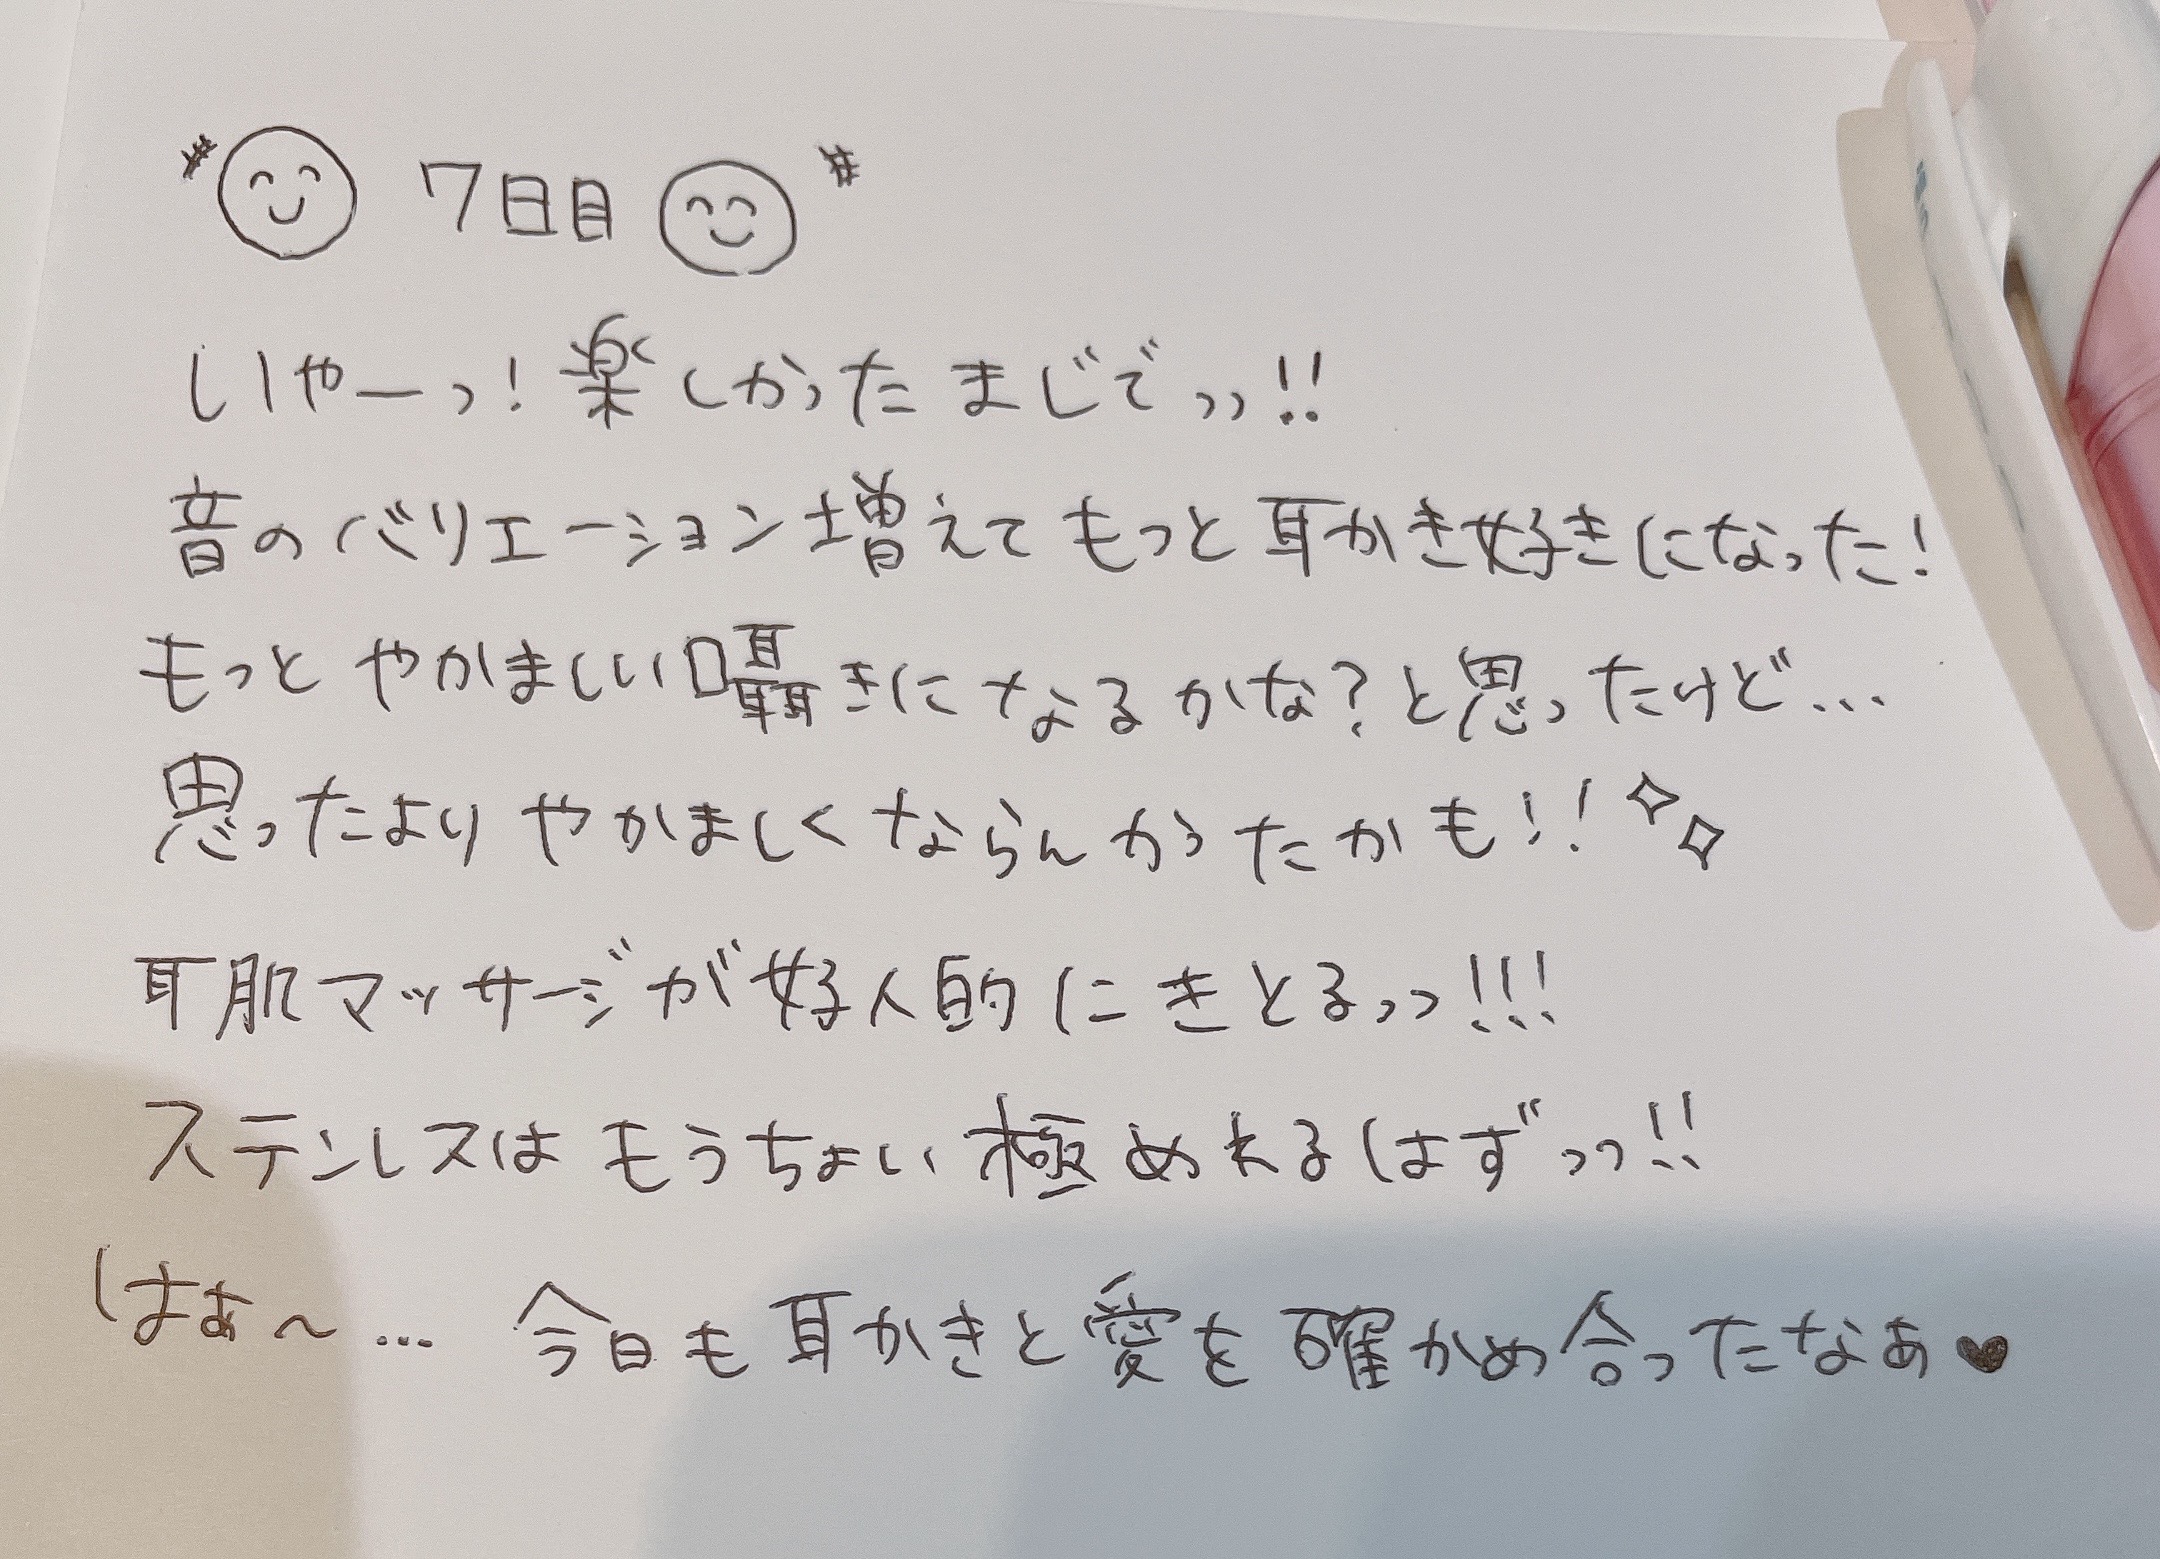 7日目
いやーっ!楽しかったまじでっっ!!
音のバリエーション増えてもっと耳かき好きになった!
もっとやかましい囁きになるかな?と思ったけど...
思ったよりやかましくならんかったかも!!
耳肌マッサージが好人的にきとるっっ!!!
ステンレスはもうちょい極めれるはずっっ!!
はぁ〜... 今日も耳かきと愛を確かめ合ったなぁ♥